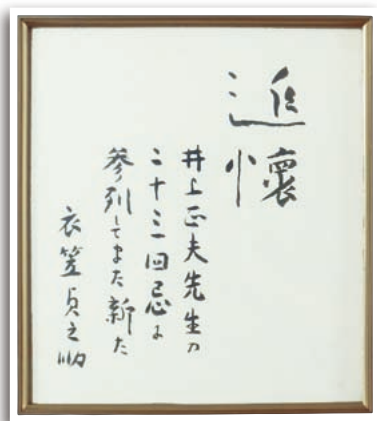 追懐
井上正夫先生の
二十三回忌に
参列してまた新た
衣笠貞之助